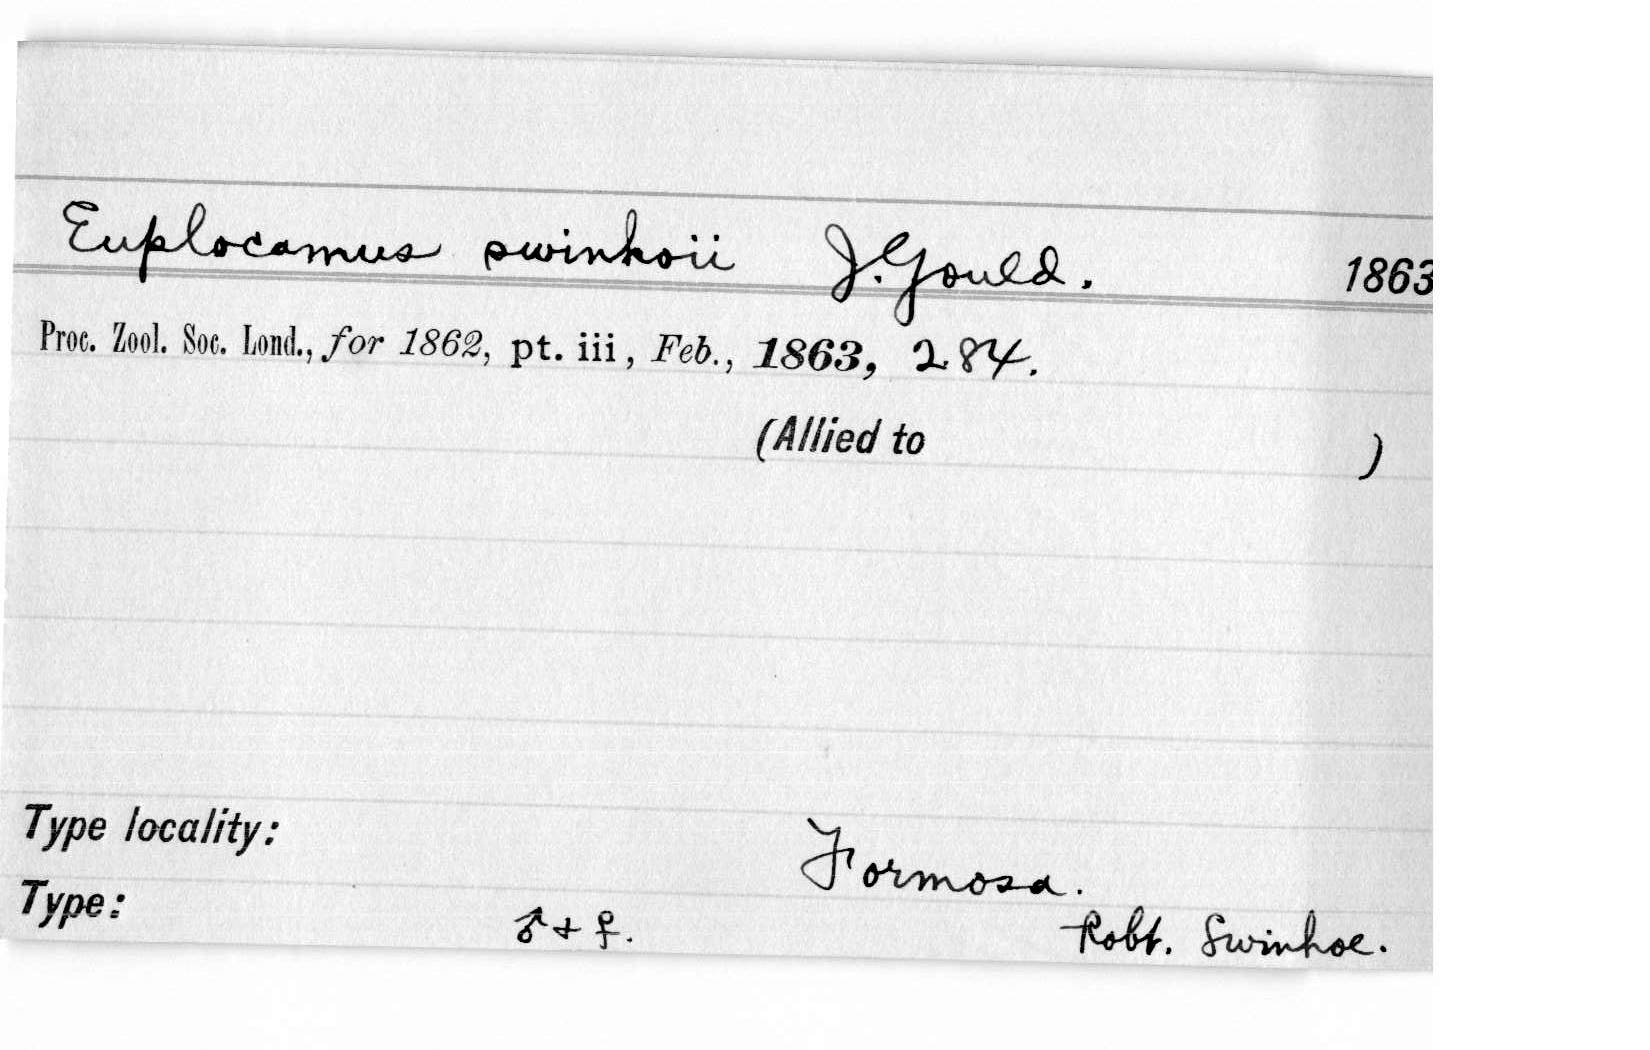 Euplocamus swinhoii J. Gould. 1863
Proc. Zool. Soc. Lond., for 1862, pt. iii, Feb., 1863, 284.
(Allied to )
Type locality: Formosa.
Type: ♂ + ♀. Robt. Swinhoe.